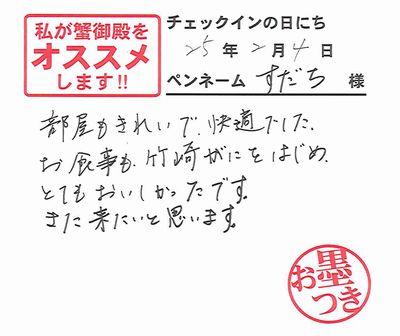 私が蟹御殿を
オススメ
します!!
チェックインの日にち
25年2月4日
ペンネーム すだち 様
部屋もきれいで、快適でした。
お食事も、竹崎がにをはじめ、
とてもおいしかったです。
また来たいと思います。
お墨つき